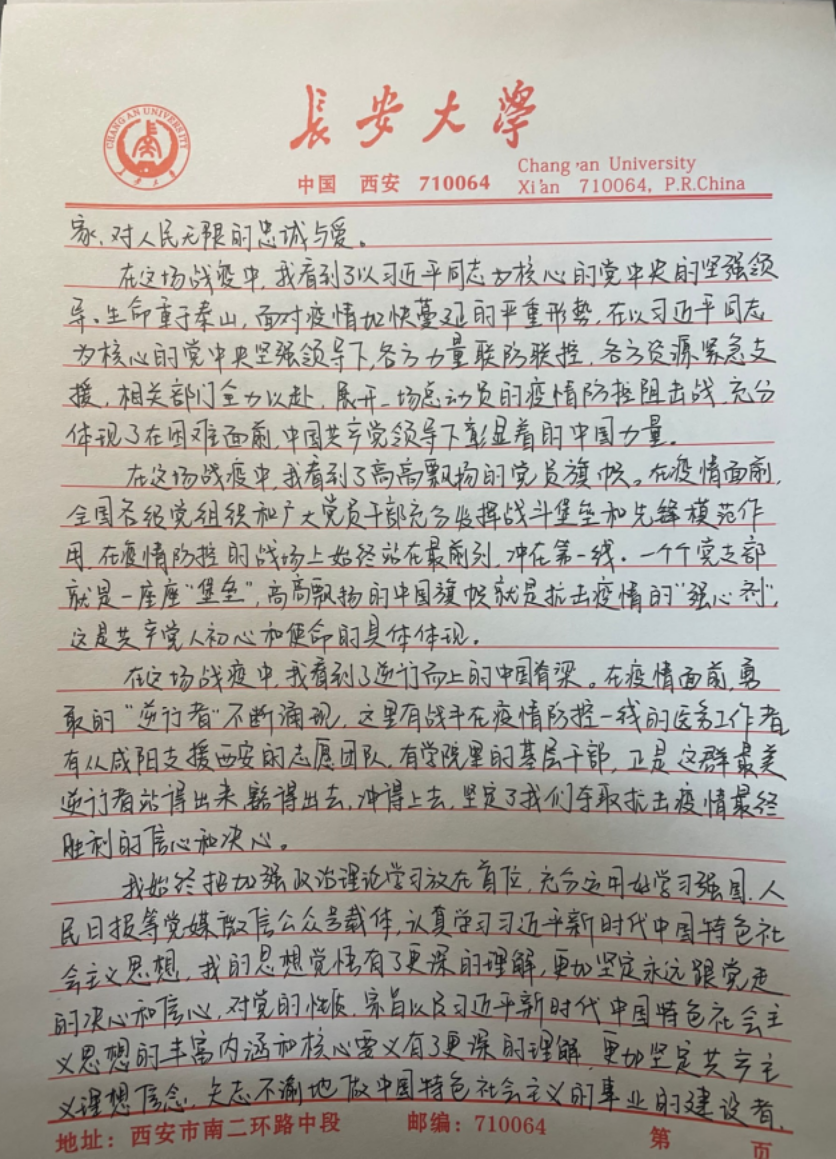 CHANG'AN UNIVERSITY
長安大學
長安大學
中国 西安 710064
Chang'an University
Xi'an 710064, P.R.China
家、对人民无限的忠诚与爱。
在这场战疫中,我看到了以习近平同志为核心的党中央的坚强领
导。生命重于泰山,面对疫情加快蔓延的严重形势,在以习近平同志
为核心的党中央坚强领导下,各方力量联防联控,各方资源紧急支
援,相关部门全力以赴,展开一场总动员的疫情防控阻击战,充分
体现了在困难面前,中国共产党领导下彰显着的中国力量。
在这场战疫中,我看到了高高飘扬的党员旗帜。在疫情面前,
全国各级党组织和广大党员干部充分发挥战斗堡垒和先锋模范作
用,在疫情防控的战场上始终站在最前列,冲在第一线。一个个党支部
就是一座座“堡垒”,高高飘扬的中国旗帜就是抗击疫情的“强心剂”,
这是共产党人初心和使命的具体体现。
在这场战疫中,我看到了逆行而上的中国脊梁。在疫情面前,勇
敢的“逆行者”不断涌现,这里有战斗在疫情防控一线的医务工作者,
有从咸阳支援西安的志愿团队,有学院里的基层干部,正是这群最美
逆行者站得出来,豁得出去,冲得上去,坚定了我们夺取抗击疫情最终
胜利的信心和决心。
我始终把加强政治理论学习放在首位,充分运用好学习强国、人
民日报等党媒微信公众号载体,认真学习习近平新时代中国特色社
会主义思想,我的思想觉悟有了更深的理解,更加坚定永远跟党走
的决心和信心,对党的性质、宗旨以及习近平新时代中国特色社会主
义思想的丰富内涵和核心要义有了更深的理解,更加坚定共产主
义理想信念,矢志不渝地做中国特色社会主义的事业的建设者,
地址:西安市南二环路中段 邮编:710064 第 页